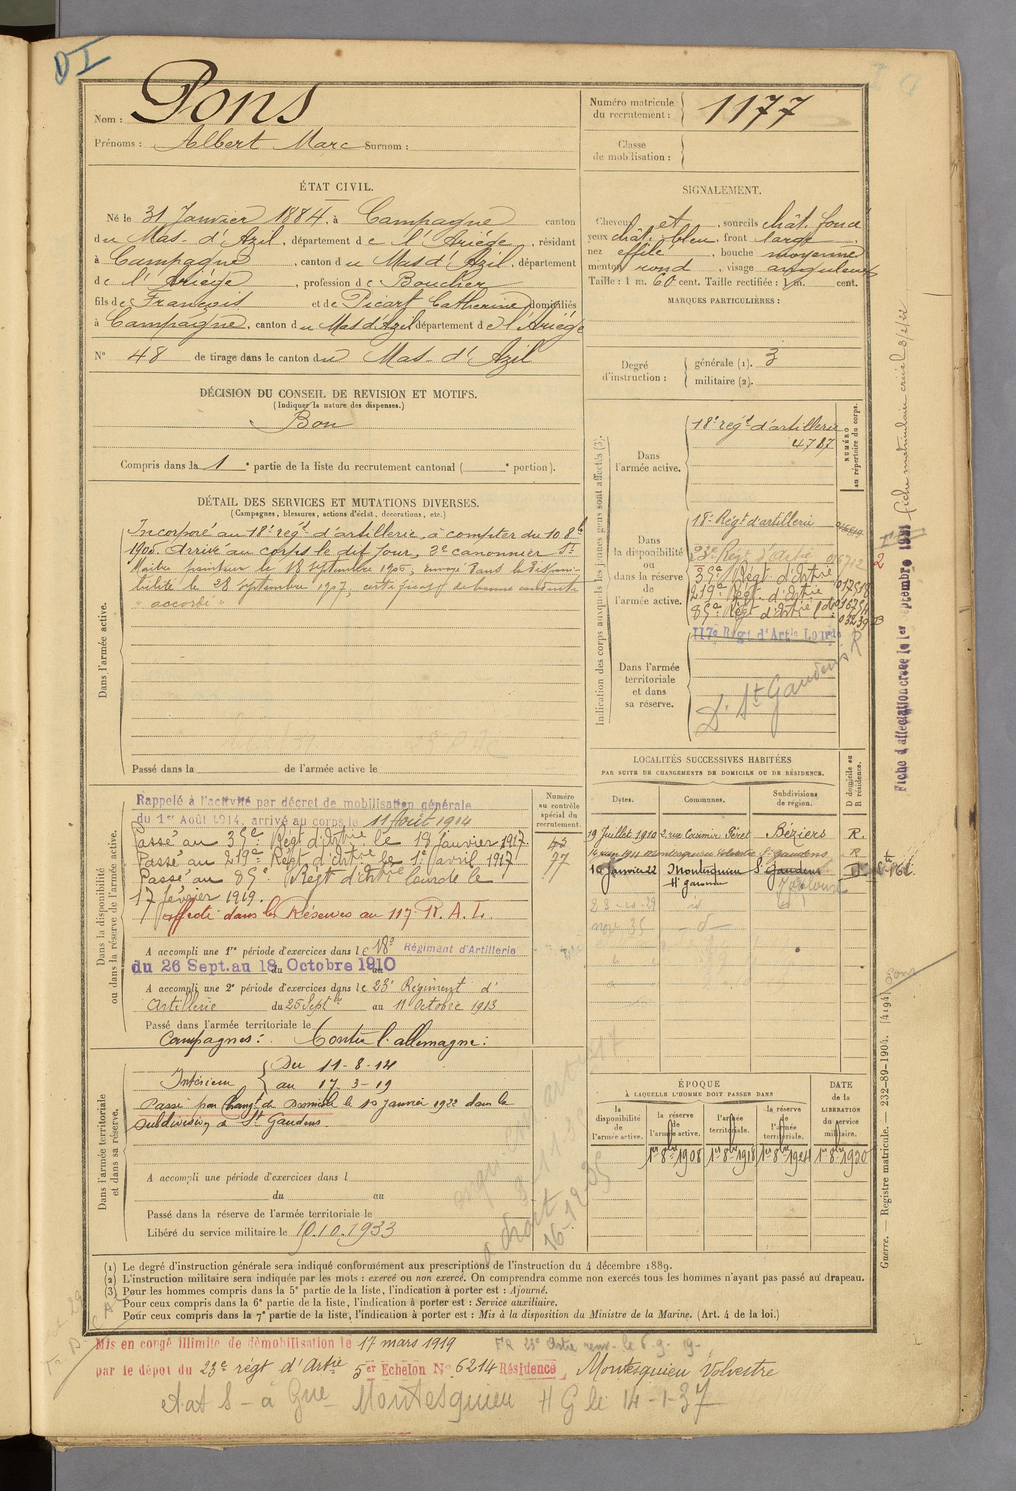 DI
Nom : Pons
Prénoms : Albert Marc Surnom :
Numéro matricule du recrutement : 1177
Classe de mobilisation :
ÉTAT CIVIL.
Né le 31 Janvier 1884, à Campagne canton
du Mas-d'Azil, département de l'Ariège, résidant
à Campagne, canton du Mas d'Azil, département
de l'Ariège, profession de Boucher
fils de François et de Picart Catherine, domiciliés
à Campagne, canton du Mas d'Azil département de l'Ariège
N° 48 de tirage dans le canton du Mas-d'Azil
SIGNALEMENT.
Cheveux et, sourcils chât. foncé
yeux chât. bleu, front large,
nez effilé, bouche moyenne
menton rond, visage anguleux
Taille : 1 m. 60 cent. Taille rectifiée : 1 m. cent.
MARQUES PARTICULIÈRES :
Degré d'instruction : générale (1). 3
militaire (2).
DÉCISION DU CONSEIL DE REVISION ET MOTIFS.
(Indiquer la nature des dispenses.)
Bon
Compris dans la 1e partie de la liste du recrutement cantonal ( e portion).
DÉTAIL DES SERVICES ET MUTATIONS DIVERSES.
(Campagnes, blessures, actions d'éclat, décorations, etc.)
Dans l'armée active.
Incorporé au 18e régt d'artillerie, à compter du 10 8bre
1905. Arrivé au corps le dit jour, 2e canonnier St
Maître pointeur le 18 septembre 1906, envoyé dans la disponi-
bilité le 28 septembre 1907, certificat de bonne conduite
"accordé"
Passé dans la de l'armée active le
Indication des corps auxquels les jeunes gens sont affectés (3).
NUMÉRO au répertoire du corps.
Dans l'armée active.
18e régt d'artillerie
4787
Dans la disponibilité ou dans la réserve de l'armée active.
18e Régt d'artillerie
23e Régt d'Artie
35e Régt d'Artie 01758
219e Régt d'Artie
85e Régt d'Artie Lde
117e Régt d'Artie Lourde
Dans l'armée territoriale et dans sa réserve.
D. St Gaudens R
Dans la disponibilité ou dans la réserve de l'armée active.
Numéro au contrôle spécial du recrutement.
Rappelé à l'activité par décret de mobilisation générale
du 1er Août 1914, arrivé au corps le 11 Août 1914
Passé au 35e Régt d'Artie le 18 Janvier 1917.
Passé au 219e Régt d'Artie le 1er avril 1917
Passé au 85e Régt d'Artie lourde le
17 février 1919.
Affecté dans les Réserves au 117e R.A.L.
A accompli une 1re période d'exercices dans le 18e Régiment d'Artillerie
du 26 Sept. au 18 Octobre 1910
A accompli une 2e période d'exercices dans le 23e Régiment d'
Artillerie du 25 Septbre au 11 Octobre 1913
Passé dans l'armée territoriale le
Campagnes : Contre l'allemagne :
LOCALITÉS SUCCESSIVES HABITÉES
PAR SUITE DE CHANGEMENTS DE DOMICILE OU DE RÉSIDENCE.
Dates. Communes. Subdivisions de région. D domicile ou R résidence.
19 Juillet 1910 2, rue Casimir Péret Béziers R.
Montesquieu Volvestre St Gaudens R
10 Janvier 22 Montesquieu St Gaudens D
Hte garonne Toulouse
nov 35
Dans l'armée territoriale et dans sa réserve.
Intérieur { Du 11-8-14
au 17-3-19
Passé par changt de Domicile le 10 janvier 1922 dans la
subdivision de St Gaudens.
A accompli une période d'exercices dans l
du au
Passé dans la réserve de l'armée territoriale le
Libéré du service militaire le 10.10.1933
ÉPOQUE
À LAQUELLE L'HOMME DOIT PASSER DANS
la disponibilité de l'armée active. la réserve de l'armée active. l'armée territoriale. la réserve de l'armée territoriale. DATE de la LIBÉRATION du service militaire.
1er 8bre 1908 1er 8bre 1918 1er 8bre 1924 1er 8bre 1930
(1) Le degré d'instruction générale sera indiqué conformément aux prescriptions de l'instruction du 4 décembre 1889.
(2) L'instruction militaire sera indiquée par les mots : exercé ou non exercé. On comprendra comme non exercés tous les hommes n'ayant pas passé au drapeau.
(3) Pour les hommes compris dans la 5e partie de la liste, l'indication à porter est : Ajourné.
Pour ceux compris dans la 6e partie de la liste, l'indication à porter est : Service auxiliaire.
Pour ceux compris dans la 7e partie de la liste, l'indication à porter est : Mis à la disposition du Ministre de la Marine. (Art. 4 de la loi.)
Mis en congé illimité de démobilisation le 17 mars 1919
par le dépôt du 23e régt d'Artie 5er Echelon No 6214 Résidence Montesquieu Volvestre
Montesquieu H G le 14-1-37
Fiche d'affectation créée le 1er septembre 1931
Guerre. — Registre matricule. — 232-89-1904. [4194]